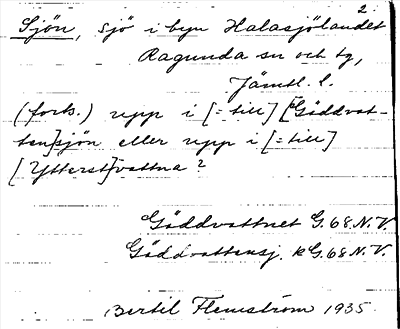 2.
Sjön, sjö i byn Halasjölandet
Ragunda sn och tg,
Jämtl. l.
(forts.) upp i [= till] [Gäddvat-
ten]sjön eller upp i [= till]
[Ytterst]vattna?
Gäddvattnet G. 68 N.V.
Gäddvattensj. kG. 68 N.V.
Bertil Flemström 1935.